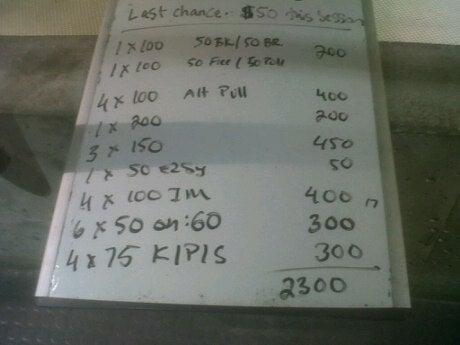 Last chance: $50 this session
1 x 100 50 BK / 50 BR 200
1 x 100 50 Free / 50 Pull
4 x 100 Alt Pull 400
1 x 200 200
3 x 150 450
1 x 50 e2sy 50
4 x 100 IM 400
6 x 50 on :60 300
4 x 75 K/P/S 300
2300